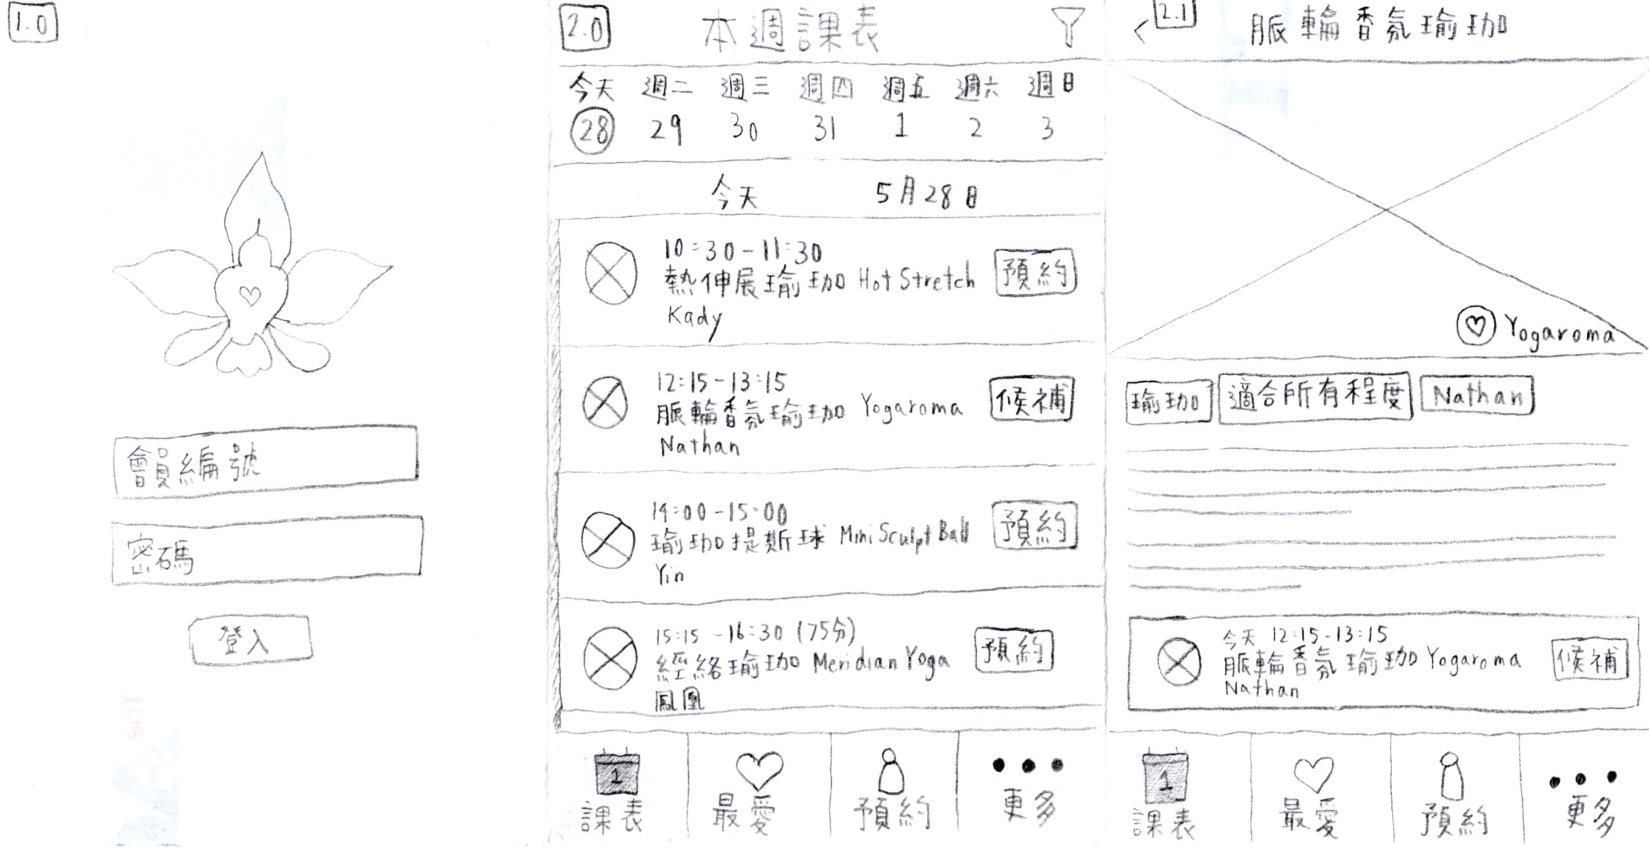 1.0
會員編號
密碼
登入
2.0
本週課表
今天 週二 週三 週四 週五 週六 週日
28 29 30 31 1 2 3
今天 5月28日
10:30-11:30
熱伸展瑜珈 Hot Stretch
Kady
預約
12:15-13:15
脈輪香氛瑜珈 Yogaroma
Nathan
候補
14:00-15:00
瑜珈提斯球 Mini Sculpt Ball
Yin
預約
15:15-16:30 (75分)
經絡瑜珈 Meridian Yoga
鳳凰
預約
1
課表 最愛 預約 更多
2.1
脈輪香氛瑜珈
Yogaroma
瑜珈 適合所有程度 Nathan
今天 12:15-13:15
脈輪香氛瑜珈 Yogaroma
Nathan
候補
1
課表 最愛 預約 更多